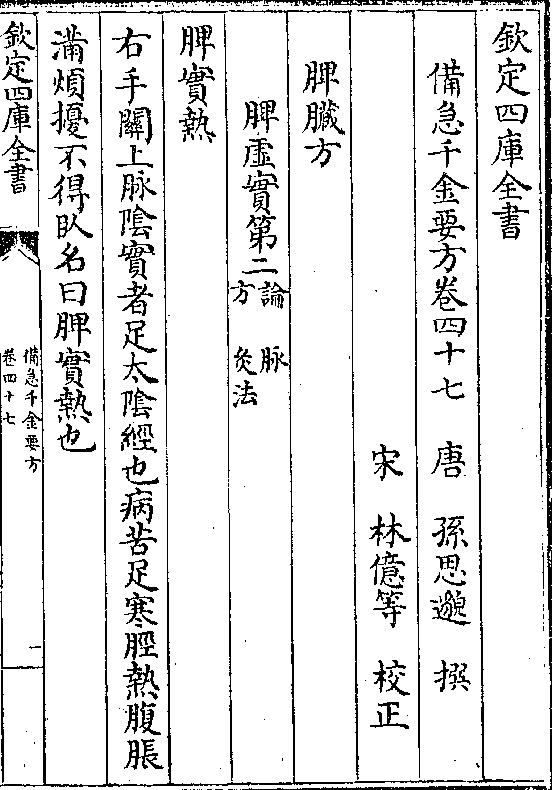 欽定四庫全書
備急千金要方卷四十七 唐 孫思邈 撰
宋 林億等 校正
脾臟方
脾虛實第二 論 脉 方 灸法
脾實熱
右手關上脉陰實者足太陰經也病苦足寒脛熱腹脹
滿煩擾不得臥名曰脾實熱也
欽定四庫全書
備急千金要方
卷四十七
一